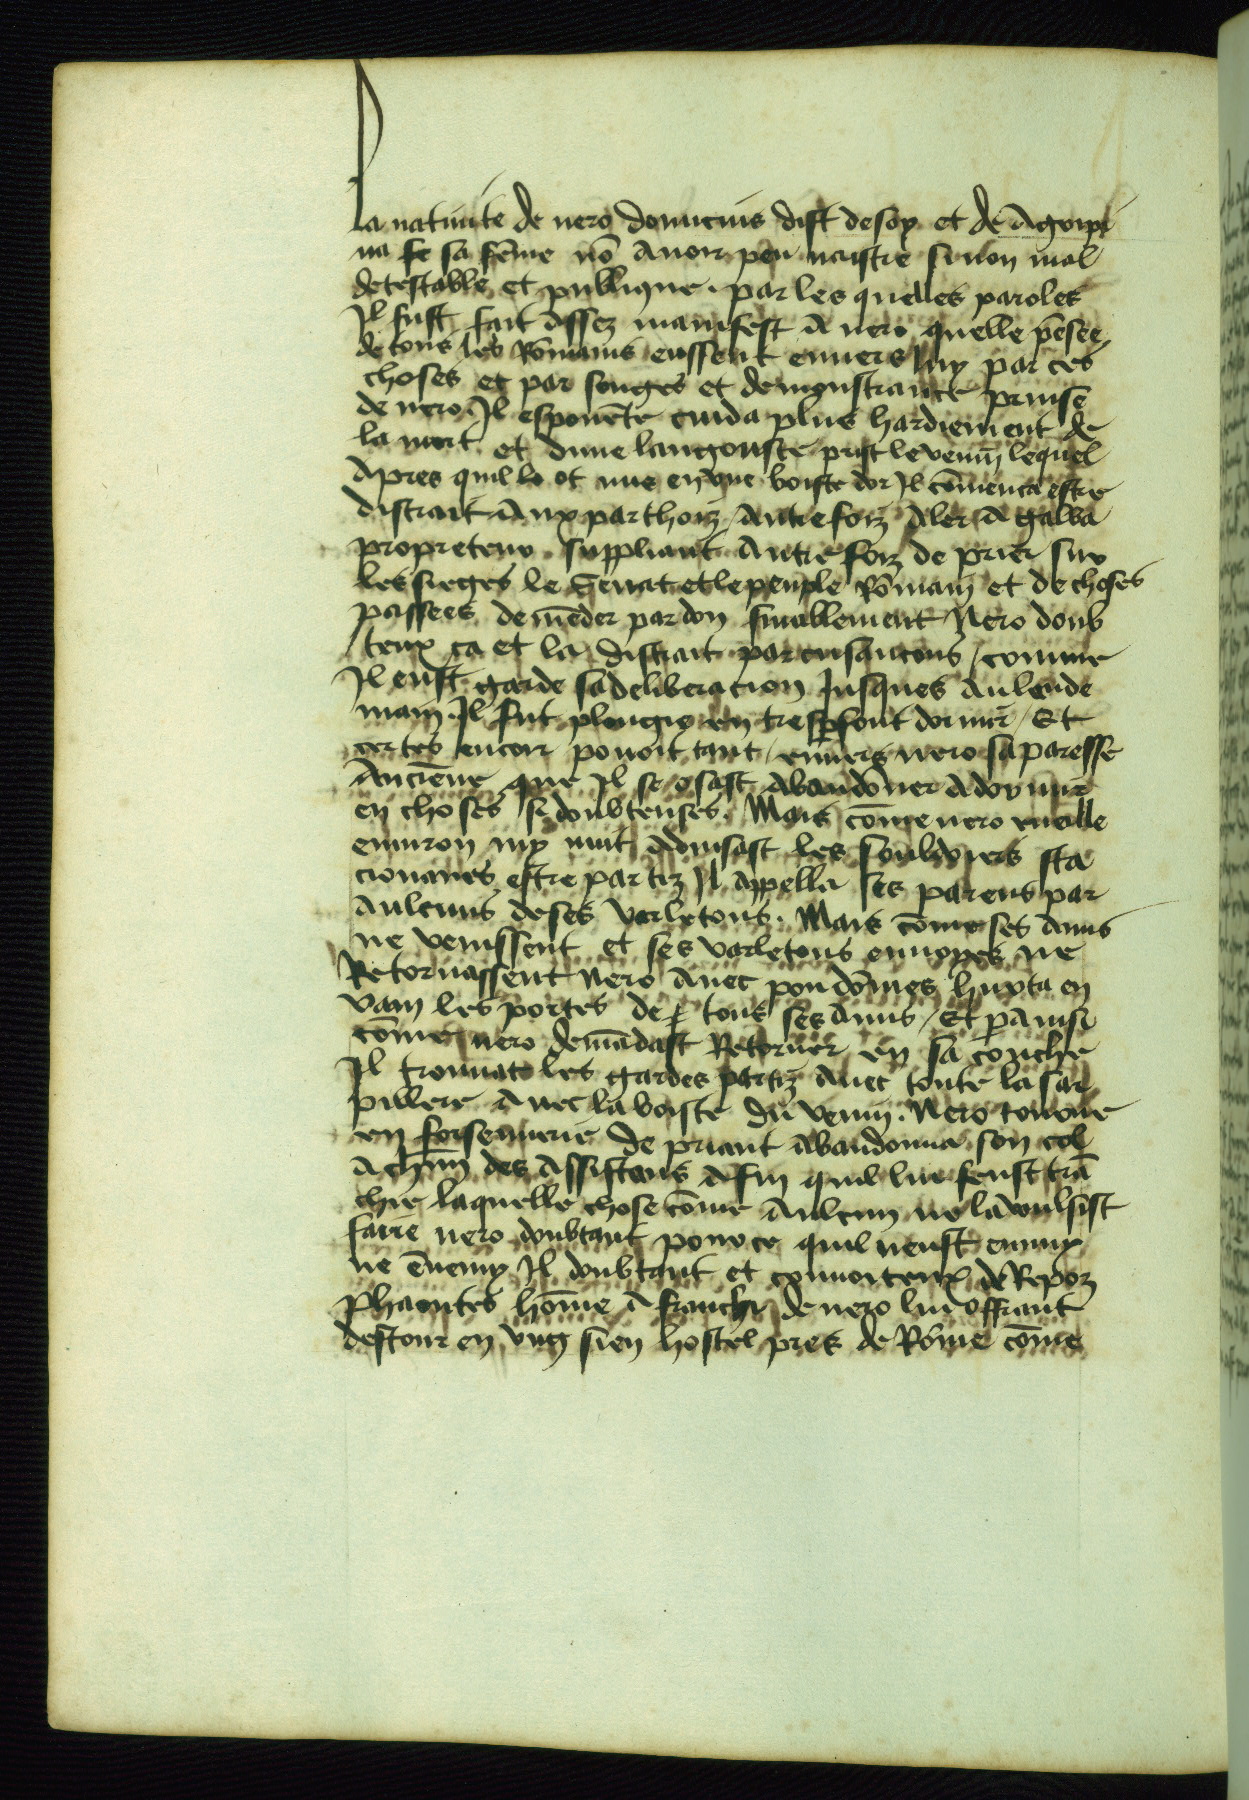 La natiuite de nero domicius dist de soy et de Agripi
na fe sa fe͞me no͞ Auoir peu naistre sinon mal
detestable et publique . par les quelles paroles
Il fust fait Assez manifest A nero quelle pe͞see
de tous les Ro͞mains eussent enuers luy par ces
choses et par songes et demonstrance
de nero Il espoue͞te cuida plus hardiement de
la mort et dune langouste prist le venin lequel
Apres quil lo ot mis en vne boiste dor Il co͞menca estre
distrait Aux parthoiz / Autrefoiz Aler A galba
propreteur suppliant Autrefoiz de prier sur
les sieges le Senat et le peuple Ro͞main et de choses
passees dema͞der pardon finablement Nero doub
teux ca et la distrait par cusancons / comme
Il eust garde sa deliberacion Iusques Au lende
main . Il fut plongie en tresp͞font dormir / Et
certes encor pouoit tant enuers nero sa paresse
Ancie͞ne que Il se osast Abando͞ner A dormir
en choses si doubteuses . Mais co͞me nero
enuiron my nuit Aduisast les souldoiers sta
cionaires estre partiz Il Appella ses parens par
Aulcuns de ses varletons . Mais co͞me ses Amis
ne venissent et ses varletons enuoyes ne
Retornassent Nero Auec pou do͞mes hurta en
vain les portes de tous ses Amis / Et p͞ Ainsi
co͞me nero dema͞dast Retorner en sa couche
Il trouuat les gardes partiz Auec toute la sar
pillere Auec la boiste du venin . Nero torne
en forsennerie de priant Abandonna son col
A ch͞un des Assistans Afin quil lui feust tra͞
chie laquelle chose co͞me Aulcun ne la voulsist
faire nero doubtant pource quil neust Amy
ne e͞nemy Il doubtant et conuoiteux de Repoz
phaontes ho͞me A franchi de nero lui offrant
destour en vng sien hostel pres de Ro͞me co͞me